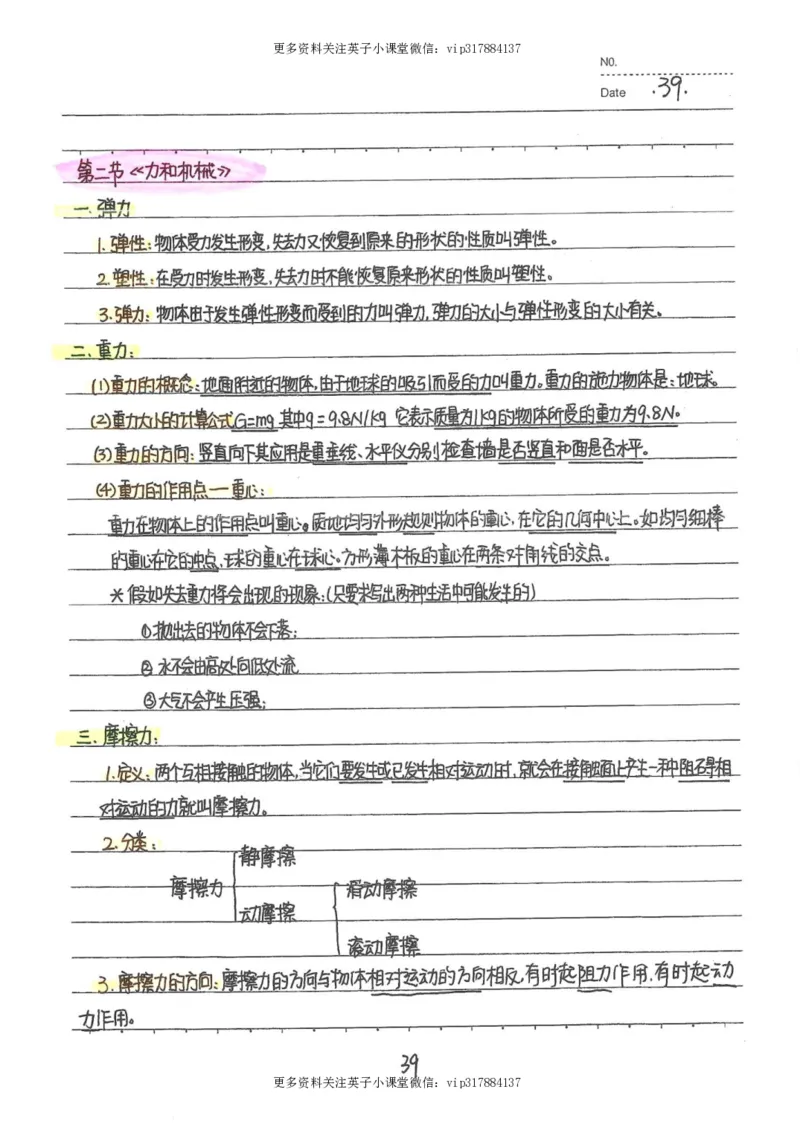 更多资料关注英子小课堂微信：vip317884137
N0.
Date .39.
第二节《力和机械》
一.弹力
1.弹性：物体受力发生形变,失去力又恢复到原来的形状的性质叫弹性。
2.塑性：在受力时发生形变,失去力时不能恢复原来形状的性质叫塑性。
3.弹力：物体由于发生弹性形变而受到的力叫弹力,弹力的大小与弹性形变的大小有关。
二、重力：
(1)重力的概念：地面附近的物体,由于地球的吸引而受的力叫重力。重力的施力物体是：地球。
(2)重力大小的计算公式G=mg 其中g=9.8N/kg 它表示质量为1kg的物体所受的重力为9.8N。
(3)重力的方向：竖直向下其应用是重垂线、水平仪分别检查墙是否竖直和面是否水平。
(4)重力的作用点一重心：
重力在物体上的作用点叫重心。质地均匀外形规则物体的重心,在它的几何中心上。如均匀细棒
的重心在它的中点,球的重心在球心。方形薄木板的重心在两条对角线的交点。
*假如失去重力将会出现的现象：(只要求写出两种生活中可能发生的)
①抛出去的物体不会下落；
②水不会由高处向低处流
③大气不会产生压强；
三、摩擦力：
1.定义：两个互相接触的物体,当它们要发生或已发生相对运动时,就会在接触面上产生一种阻碍相
对运动的力就叫摩擦力。
2.分类：
静摩擦
摩擦力
滑动摩擦
动摩擦
滚动摩擦
3.摩擦力的方向：摩擦力的方向与物体相对运动的方向相反,有时起阻力作用.有时起动
力作用。
39
更多资料关注英子小课堂微信：vip317884137